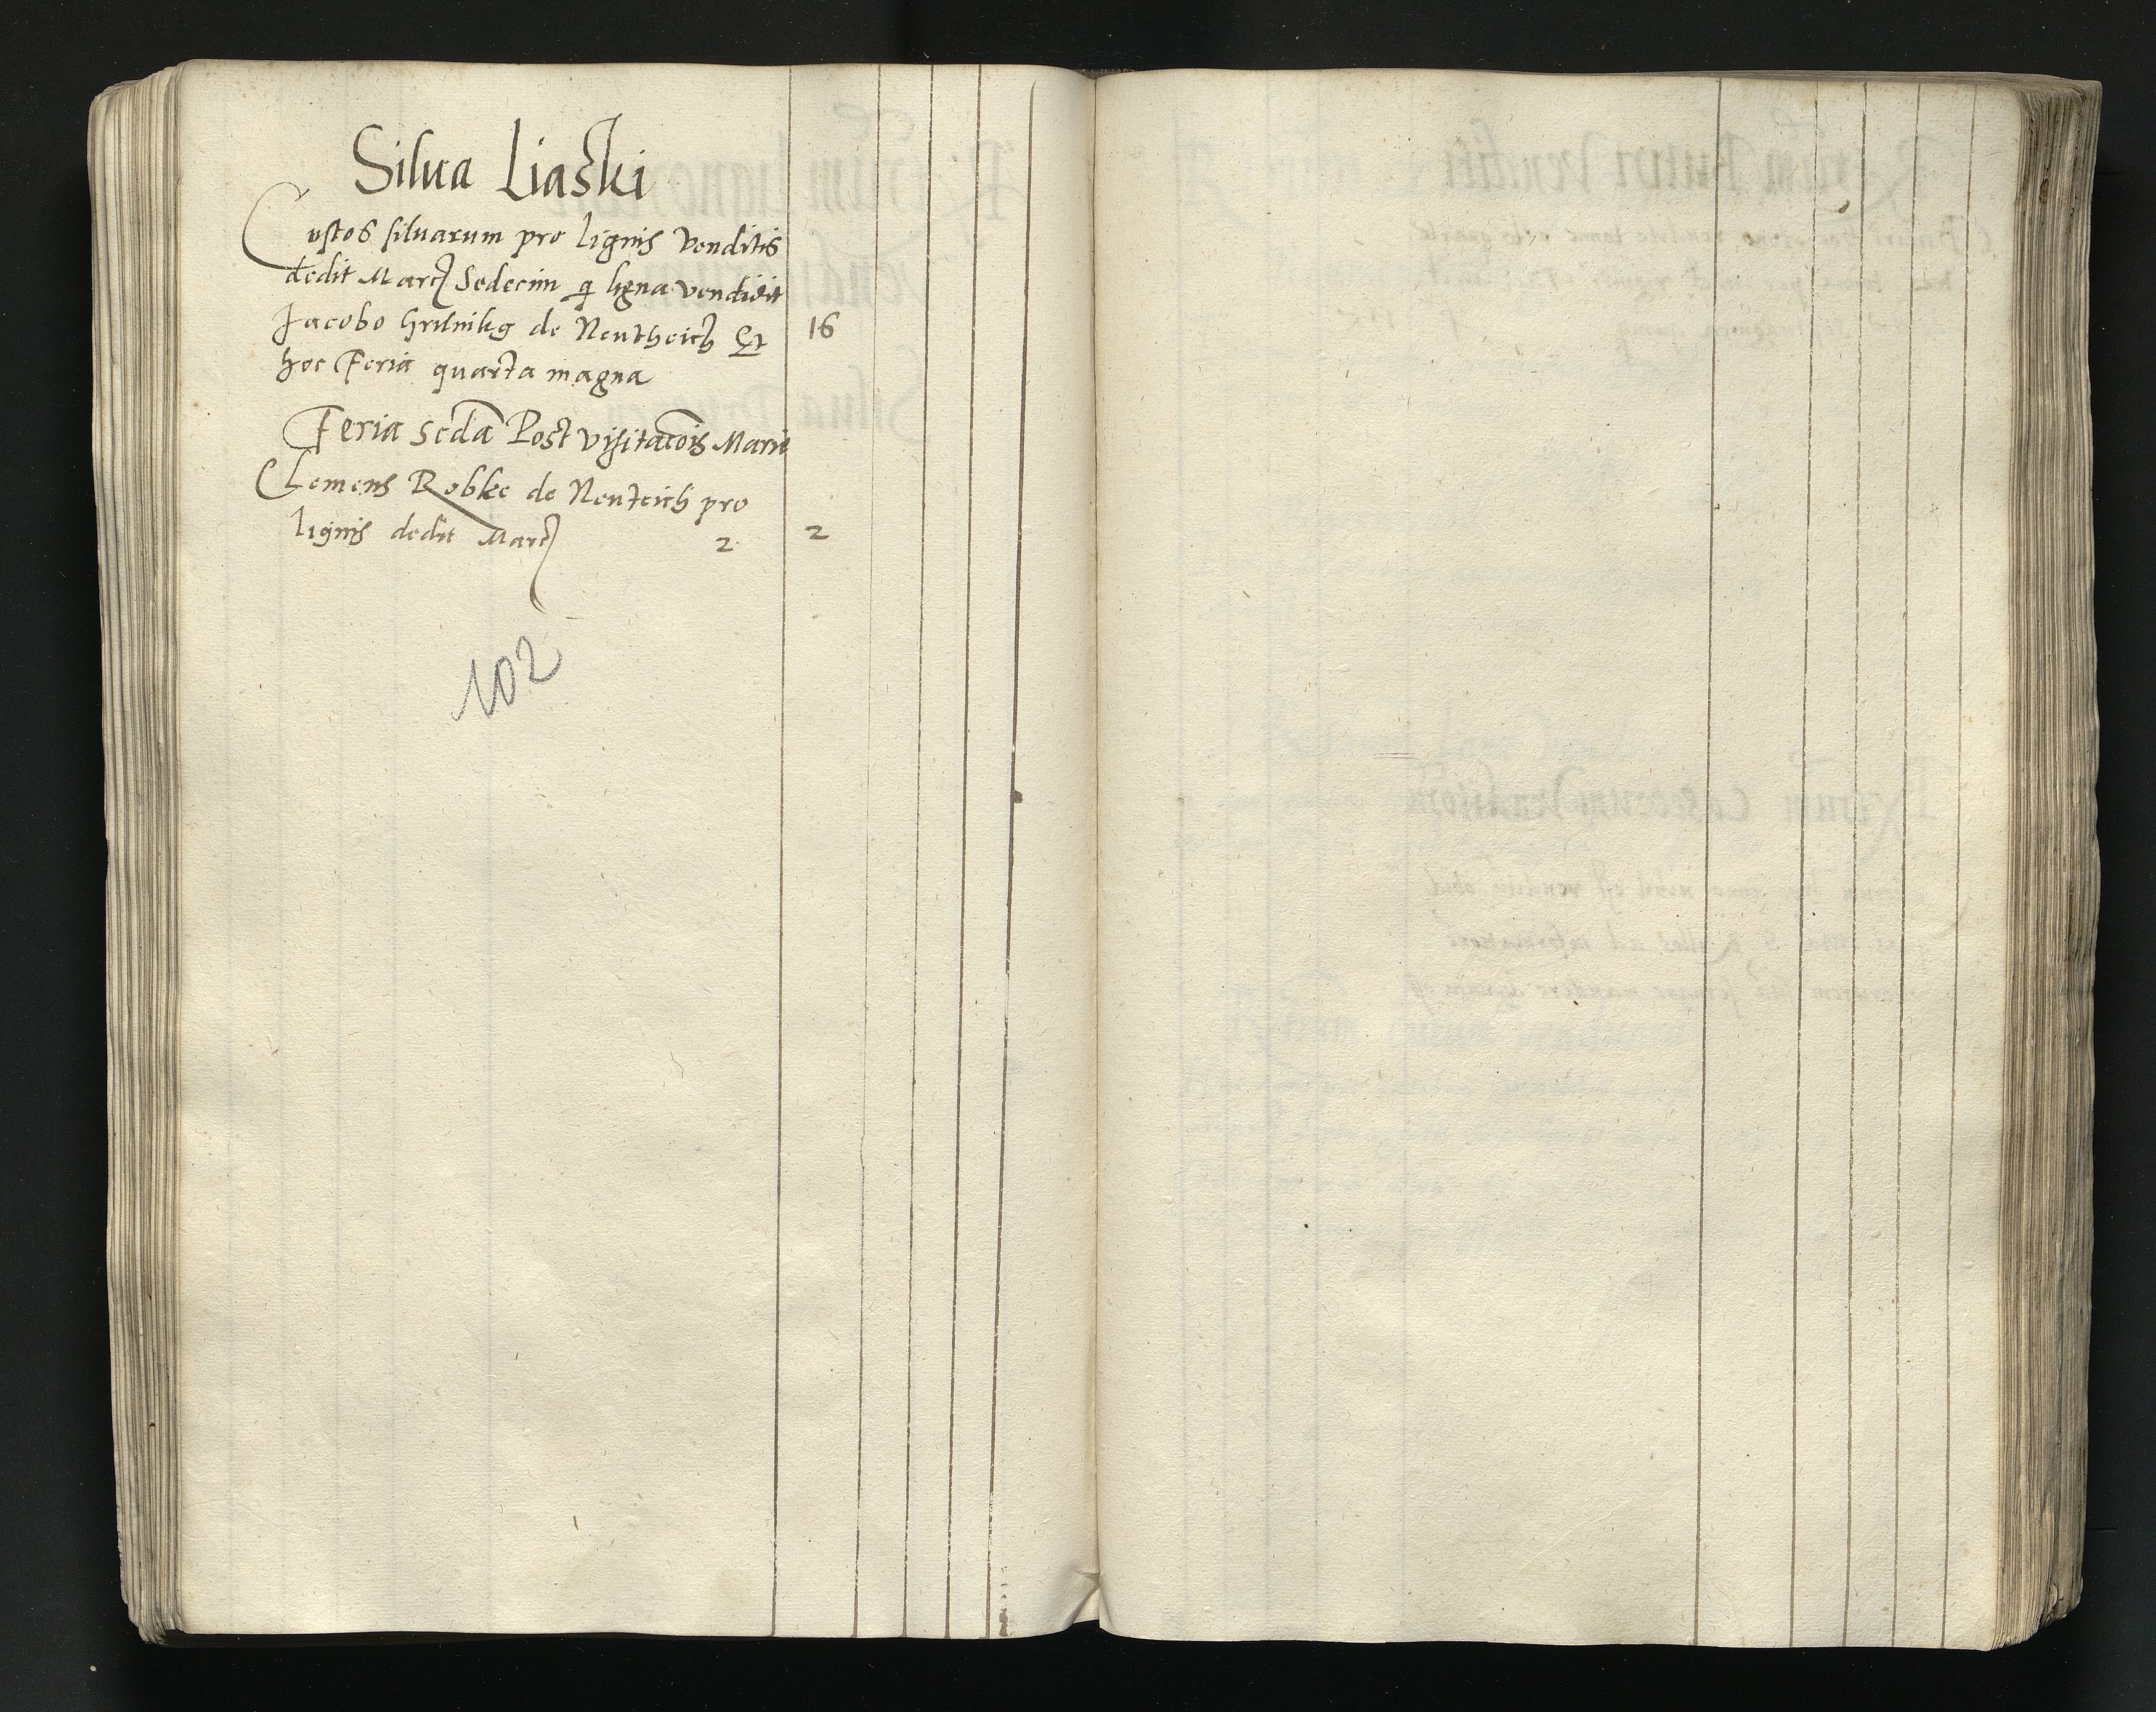 Silua Liaski
Custos siluarum pro lignis venditis
dedit Marc Sedecim q ligna vendidit
Jacobo de Neutheich Et 16
hoc Feria quarta magna
Feria scda Post visitacois Marie
Clemens Robke de Neuteich pro
lignis dedit Marc 2 2
102